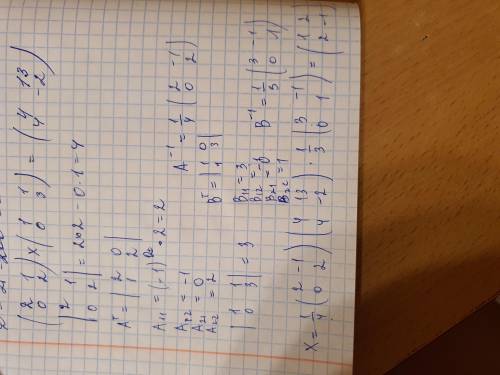 (2 1
0 2) X (1 1
0 3) = (4 13
4 -2)
|2 1
0 2| = 2*2 - 0·1 = 4
Aᵀ = |2 0
1 2|
A₁₁ = (-1) · 2 = 2
A₁₂ = -1
A₂₁ = 0
A₂₂ = 2
A⁻¹ = 1/4 (2 -1
0 2)
|1 1
0 3| = 3
Bᵀ = |1 0
1 3|
B₁₁ = 3
B₁₂ = -1
B₂₁ = 0
B₂₂ = 1
B⁻¹ = 1/3 (3 -1
0 1)
X = 1/4 (2 -1
0 2) (4 13
4 -2) · 1/3 (3 -1
0 1) = (1 2
2 -1)